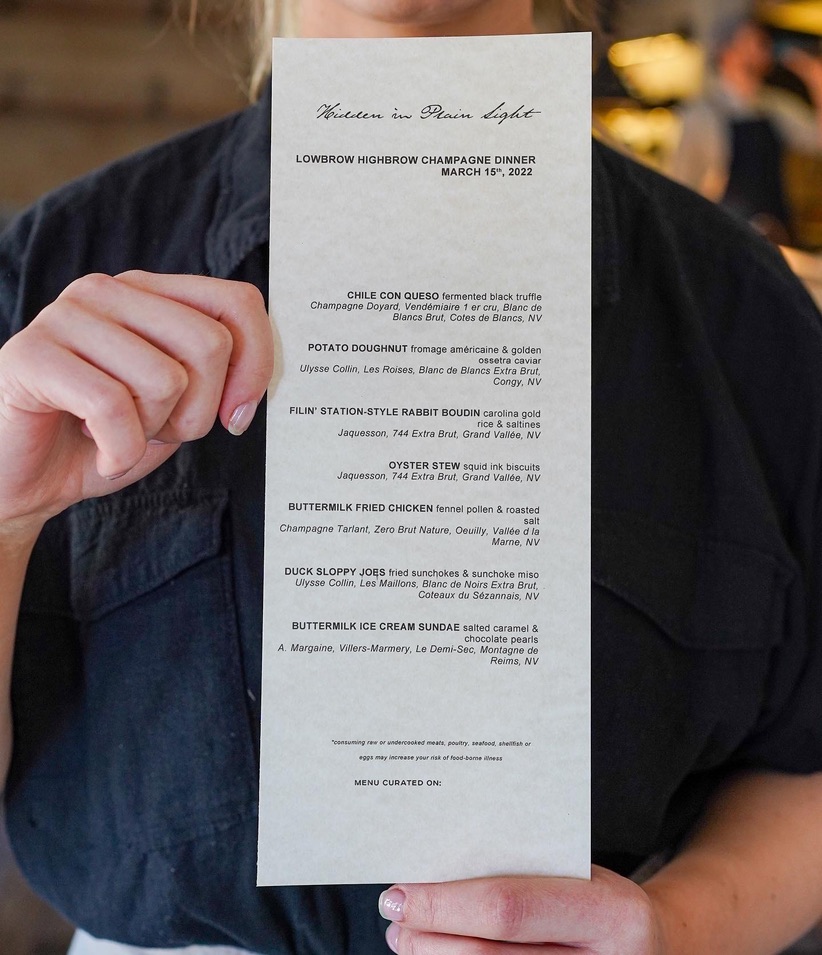 Hidden in Plain Sight
LOWBROW HIGHBROW CHAMPAGNE DINNER
MARCH 15th, 2022
CHILE CON QUESO fermented black truffle
Champagne Doyard, Vendémiaire 1 er cru, Blanc de
Blancs Brut, Cotes de Blancs, NV
POTATO DOUGHNUT fromage américaine & golden
ossetra caviar
Ulysse Collin, Les Roises, Blanc de Blancs Extra Brut,
Congy, NV
FILIN' STATION-STYLE RABBIT BOUDIN carolina gold
rice & saltines
Jaquesson, 744 Extra Brut, Grand Vallée, NV
OYSTER STEW squid ink biscuits
Jaquesson, 744 Extra Brut, Grand Vallée, NV
BUTTERMILK FRIED CHICKEN fennel pollen & roasted
salt
Champagne Tarlant, Zero Brut Nature, Oeuilly, Vallée d la
Marne, NV
DUCK SLOPPY JOES fried sunchokes & sunchoke miso
Ulysse Collin, Les Maillons, Blanc de Noirs Extra Brut,
Coteaux du Sézannais, NV
BUTTERMILK ICE CREAM SUNDAE salted caramel &
chocolate pearls
A. Margaine, Villers-Marmery, Le Demi-Sec, Montagne de
Reims, NV
*consuming raw or undercooked meats, poultry, seafood, shellfish or
eggs may increase your risk of food-borne illness
MENU CURATED ON: